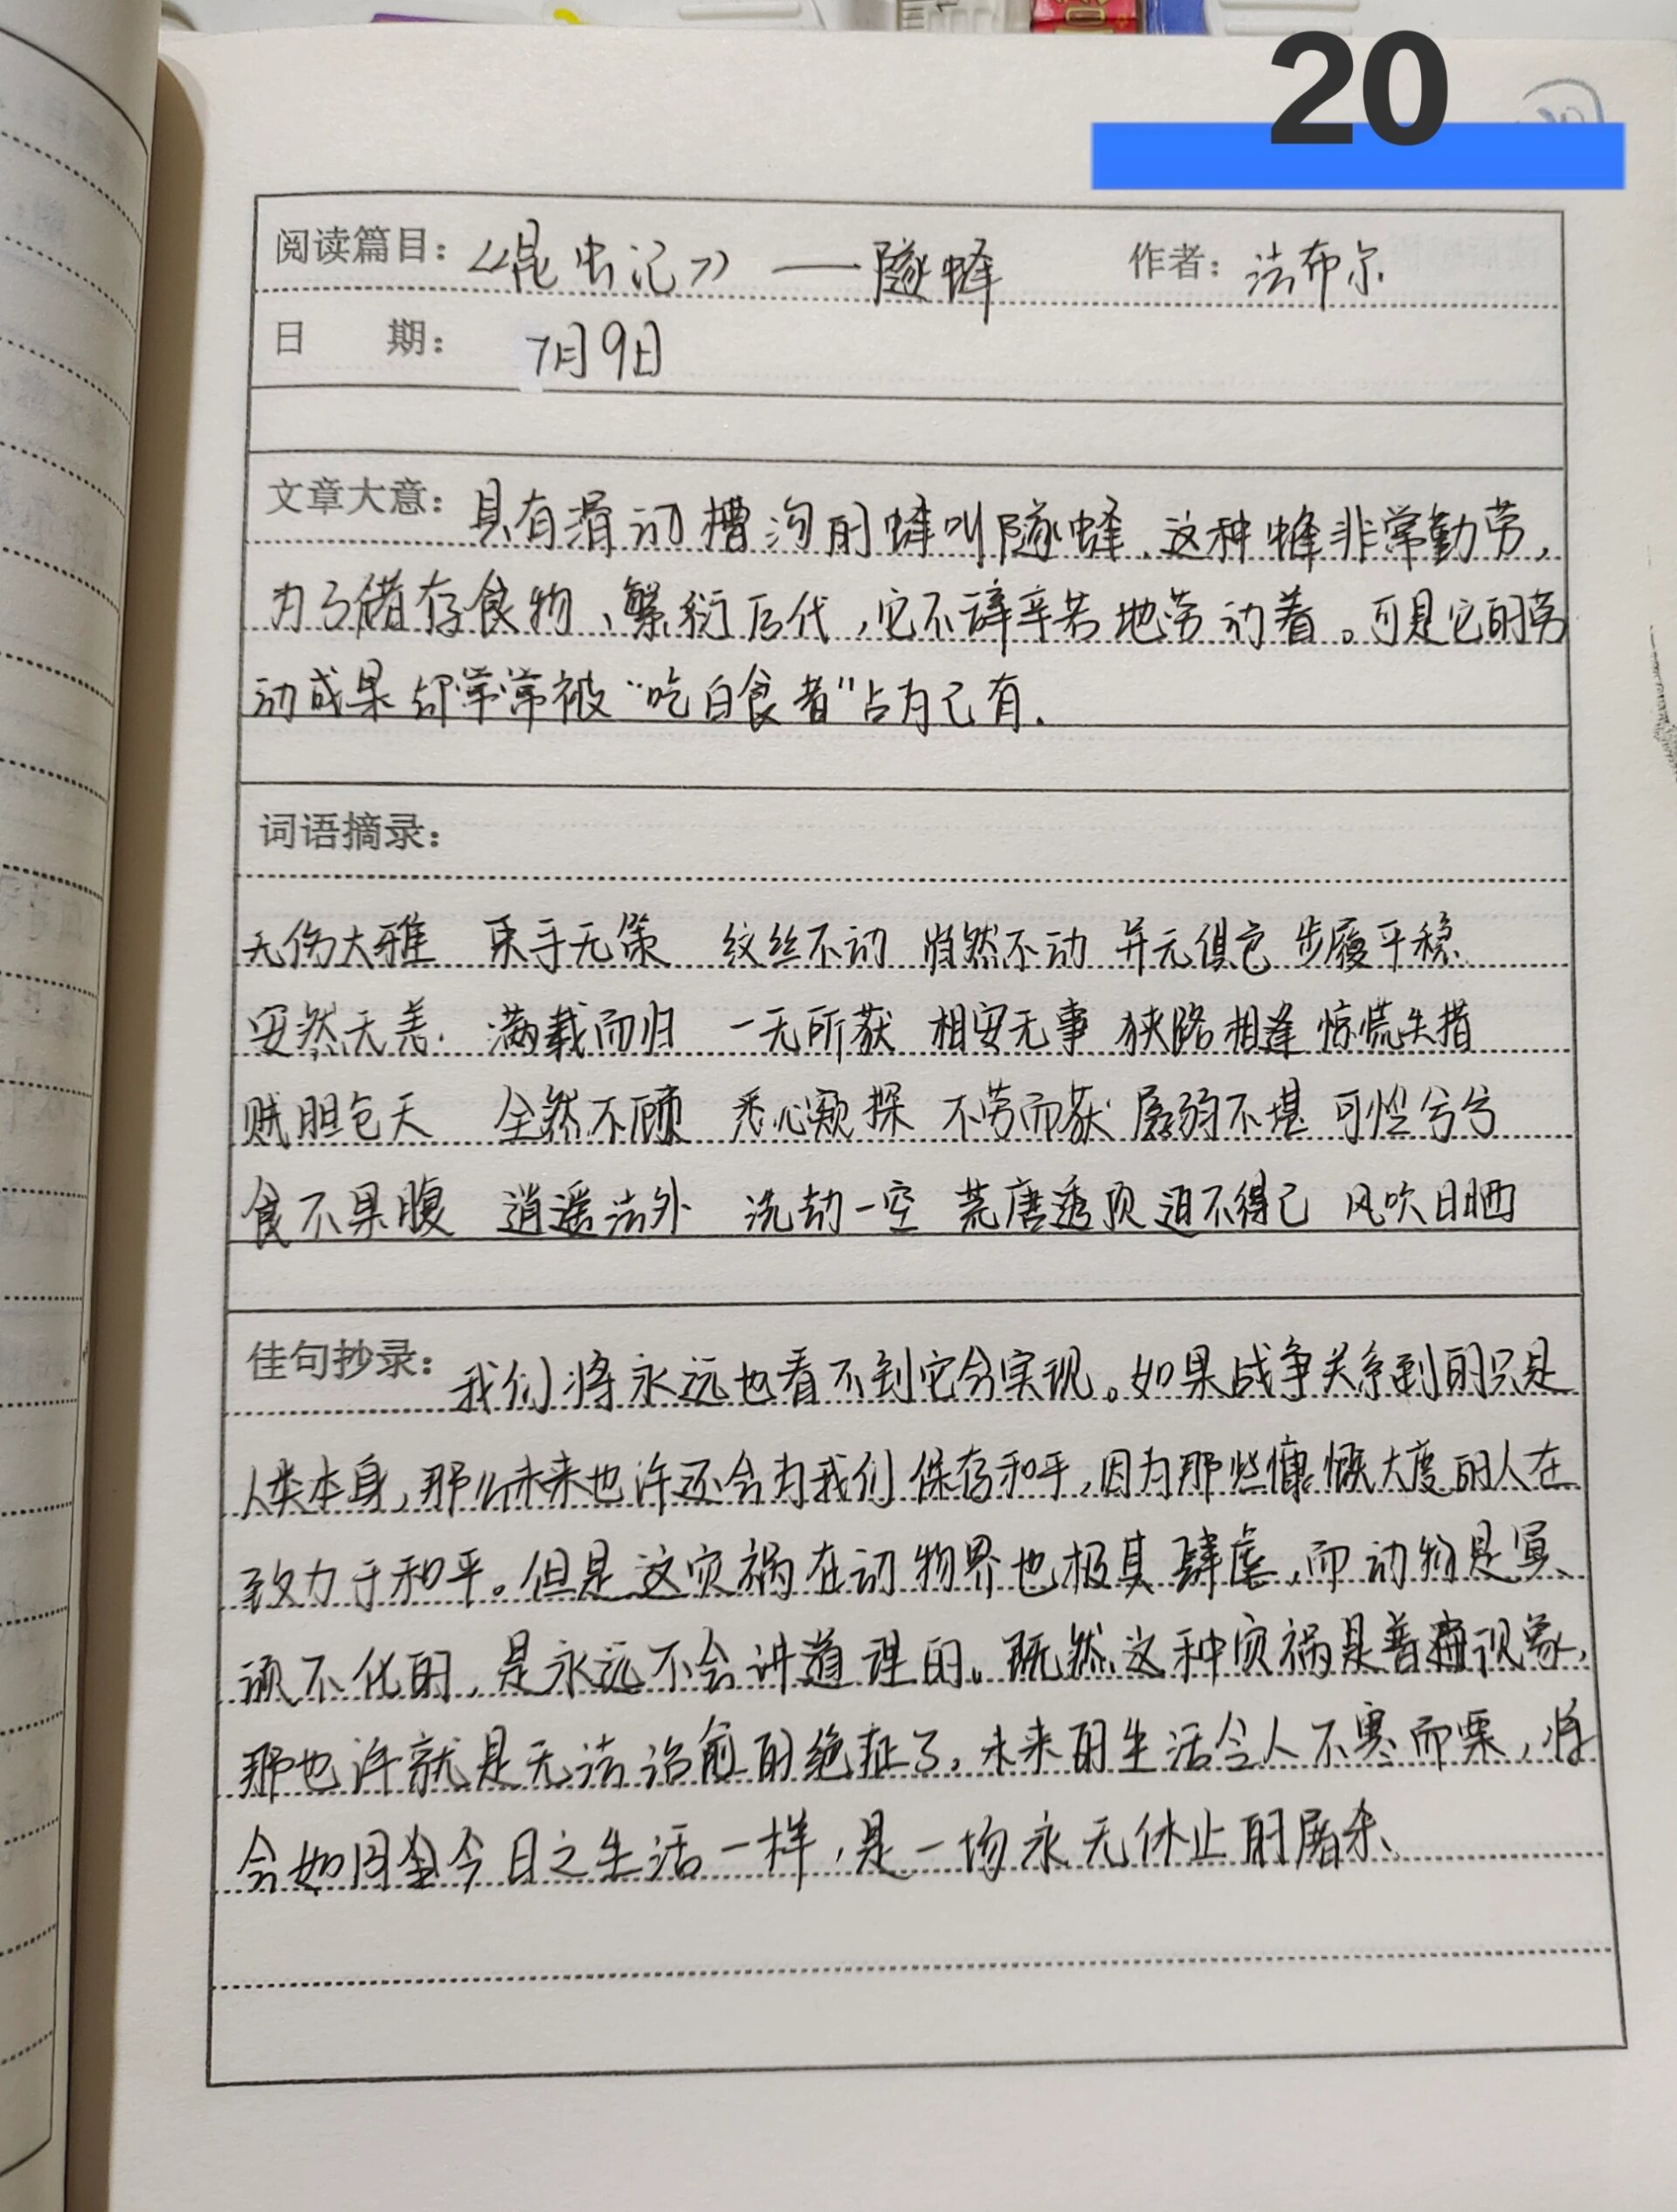 20
阅读篇目：《昆虫记》——隧蜂 作者：法布尔
日 期： 7月9日
文章大意：具有滑动槽沟的蜂叫隧蜂、这种蜂非常勤劳，
为了储存食物、繁衍后代，它不辞辛苦地劳动着。可是它的劳
动成果却常常被“吃白食者”占为己有.
词语摘录：
无伤大雅 束手无策 纹丝不动 岿然不动 并无俱乏 步履平稳
安然无恙 满载而归 一无所获 相安无事 狭路相逢 惊慌失措
贼胆包天 全然不顾 悉心窥探 不劳而获 孱弱不堪 可怜兮兮
食不果腹 逍遥法外 洗劫一空 荒唐透顶 迫不得已 风吹日晒
佳句抄录：我们将永远也看不到它会实现。如果战争关系到的只是
人类本身，那么未来也许还会为我们保存和平，因为那些慷慨大度的人在
致力于和平。但是这灾祸在动物界也极其肆虐，而动物是冥
顽不化的，是永远不会讲道理的。既然这种灾祸是普遍现象，
那也许就是无法治愈的绝症了，未来的生活令人不寒而栗，将
会如同今日之生活一样，是一场永无休止的屠杀、